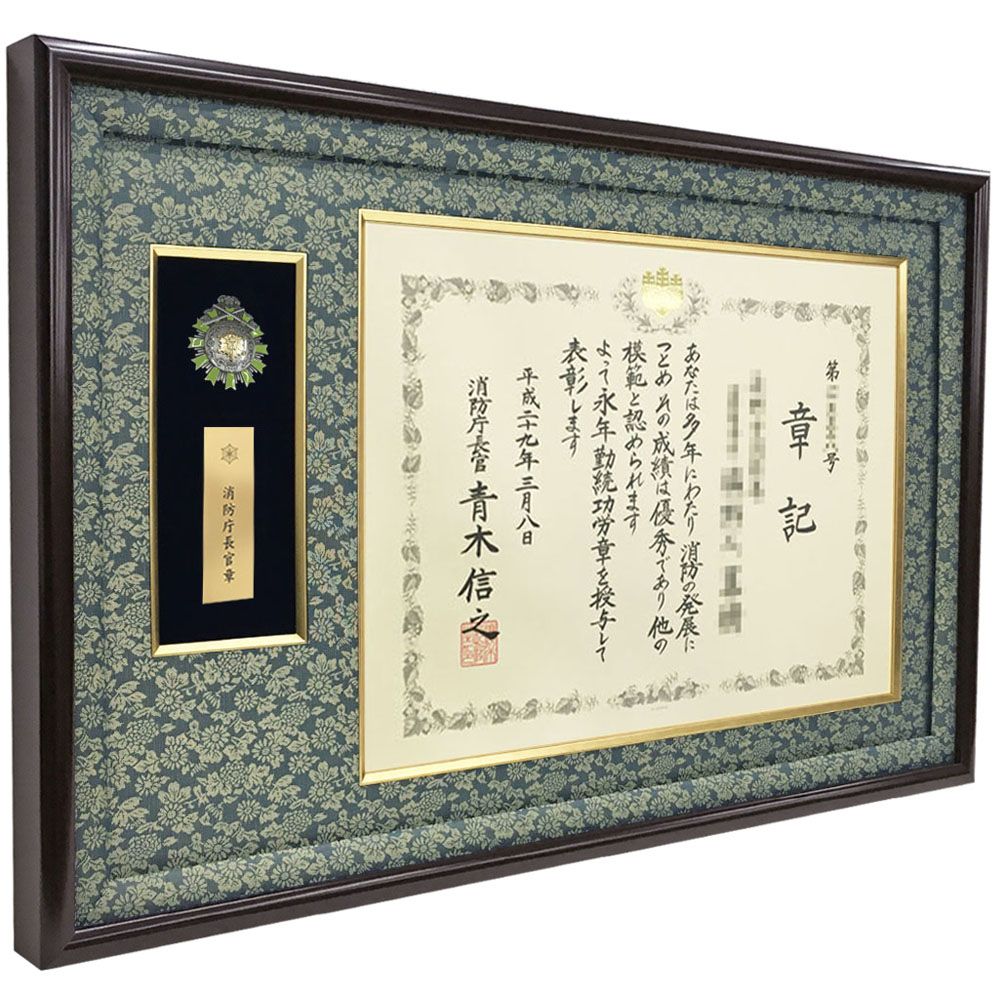 第 号
章記
あなたは多年にわたり 消防の発展に
つとめ その成績は優秀であり 他の
模範と認められます
よって永年勤続功労章を授与して
表彰します
平成二十九年三月八日
消防庁長官 青木信之
消防庁長官章